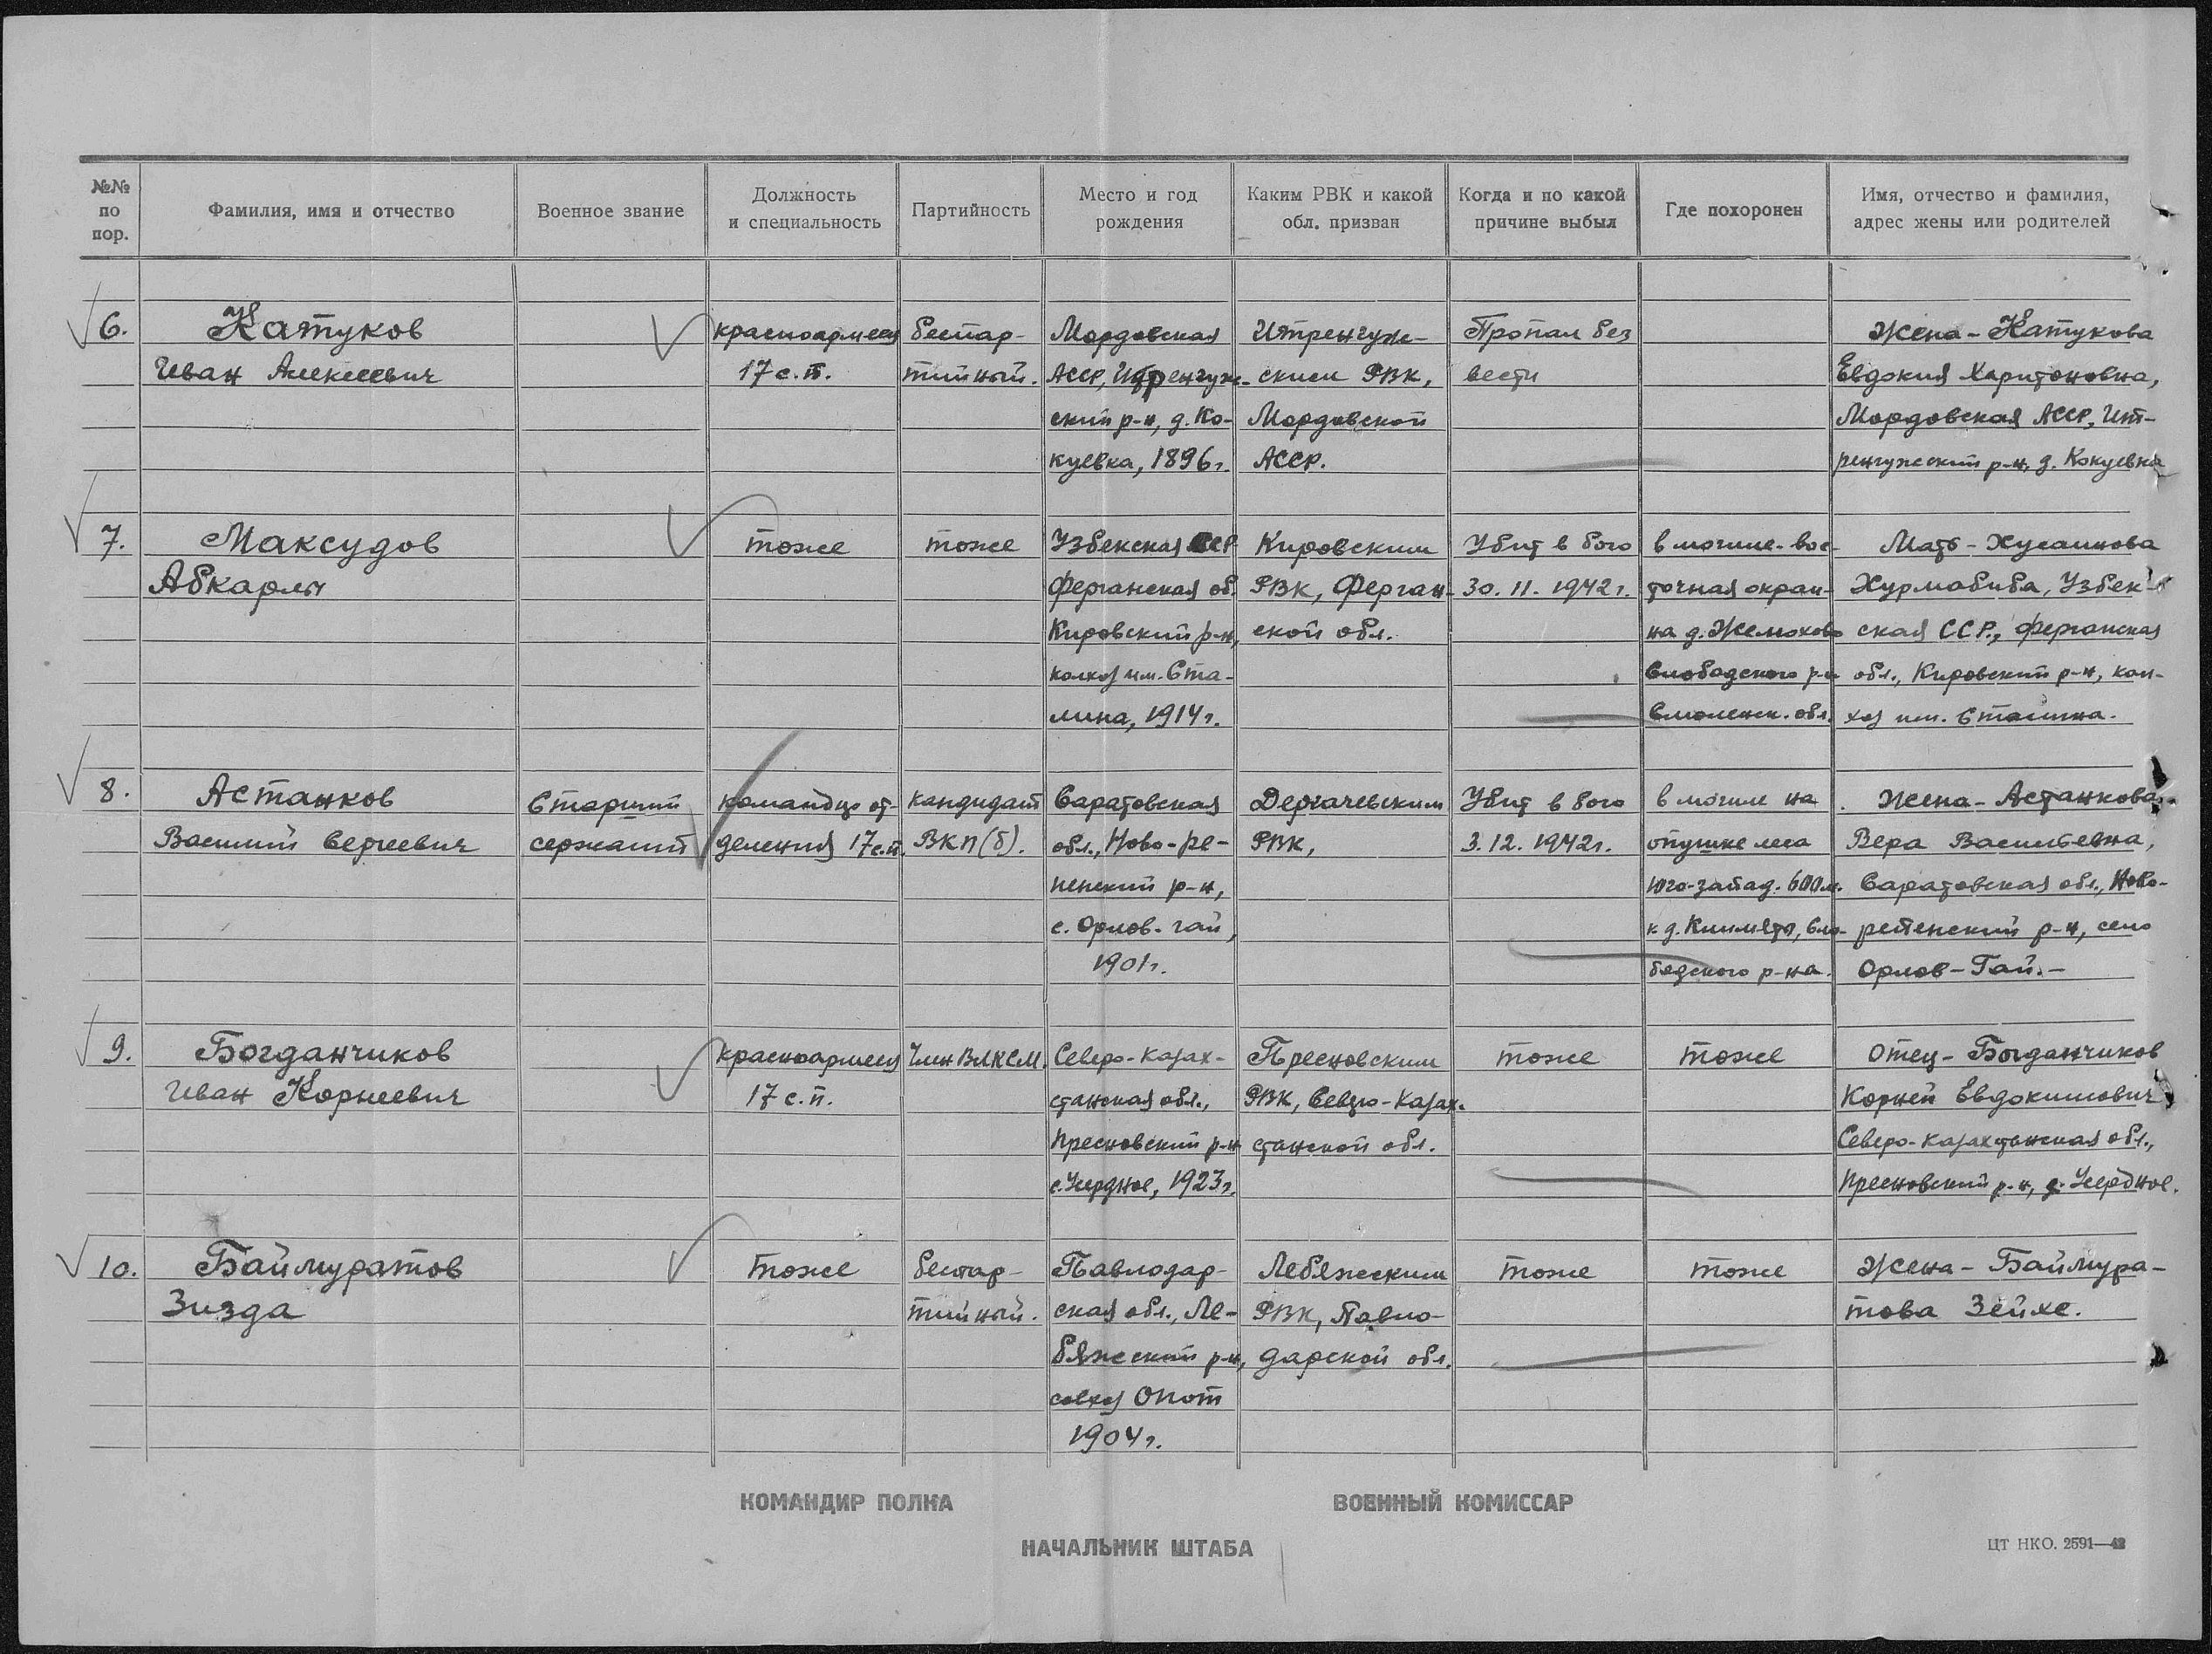 №№ по пор.
Фамилия, имя и отчество
Военное звание
Должность и специальность
Партийность
Место и год рождения
Каким РВК и какой обл. призван
Когда и по какой причине выбыл
Где похоронен
Имя, отчество и фамилия, адрес жены или родителей
6.
Катуков
Иван Алексеевич
красноармеец
17 с.п.
беспар-
тийный.
Мордовская
АССР, Итренгуж-
ский р-н, д. Ко-
куевка, 1896г.
Итренгуж-
ским РВК,
Мордовской
АССР.
Пропал без
вести
Жена - Катукова
Евдокия Харитоновна,
Мордовская АССР, Ит-
ренгужский р-н, д. Кокуевка
7.
Максудов
Абкарлы
тоже
тоже
Узбекская ССР
Ферганская об.
Кировский р-н,
колхоз им. Ста-
лина, 1914г.
Кировским
РВК, Ферган-
ской обл.
Убит в бою
30. 11. 1942г.
в могиле-вос-
точная окраи-
на д. Жемохово
Слободского р-н
Смоленск. обл.
Мать - Хусаинова
Хурмабиба, Узбек-
ская ССР, Ферганская
обл., Кировский р-н, кол-
хоз им. Сталина.
8.
Астанков
Василий Сергеевич
Старший
сержант
командир от-
деления 17с.п.
кандидат
ВКП(б).
Саратовская
обл., Ново-ре-
пенский р-н,
с. Орлов-гай,
1901г.
Дергачевским
РВК,
Убит в бою
3. 12. 1942г.
в могиле на
опушке леса
юго-запад. 600м.
к д. Климяты, Сло-
бодского р-на.
Жена - Астанкова
Вера Васильевна,
Саратовская обл., Ново-
репенский р-н, село
Орлов-Гай.-
9.
Богданчиков
Иван Корнеевич
красноармеец
17 с.п.
Член ВЛКСМ.
Северо-Казах-
станская обл.,
Пресновский р-н
с. Усердное, 1923г.
Пресновским
РВК, Северо-Казах-
станской обл.
тоже
тоже
Отец - Богданчиков
Корней Евдокимович
Северо-Казахстанская обл.,
Пресновский р-н, с. Усердное.
10.
Баймуратов
Зизда
тоже
беспар-
тийный.
Павлодар-
ская обл., Ле-
бяжеский р-н,
совхоз Опот
1904г.
Лебяжеским
РВК, Павло-
дарской обл.
тоже
тоже
Жена - Баймура-
това Зейхе.
КОМАНДИР ПОЛКА
ВОЕННЫЙ КОМИССАР
НАЧАЛЬНИК ШТАБА
ЦТ НКО. 2591—42